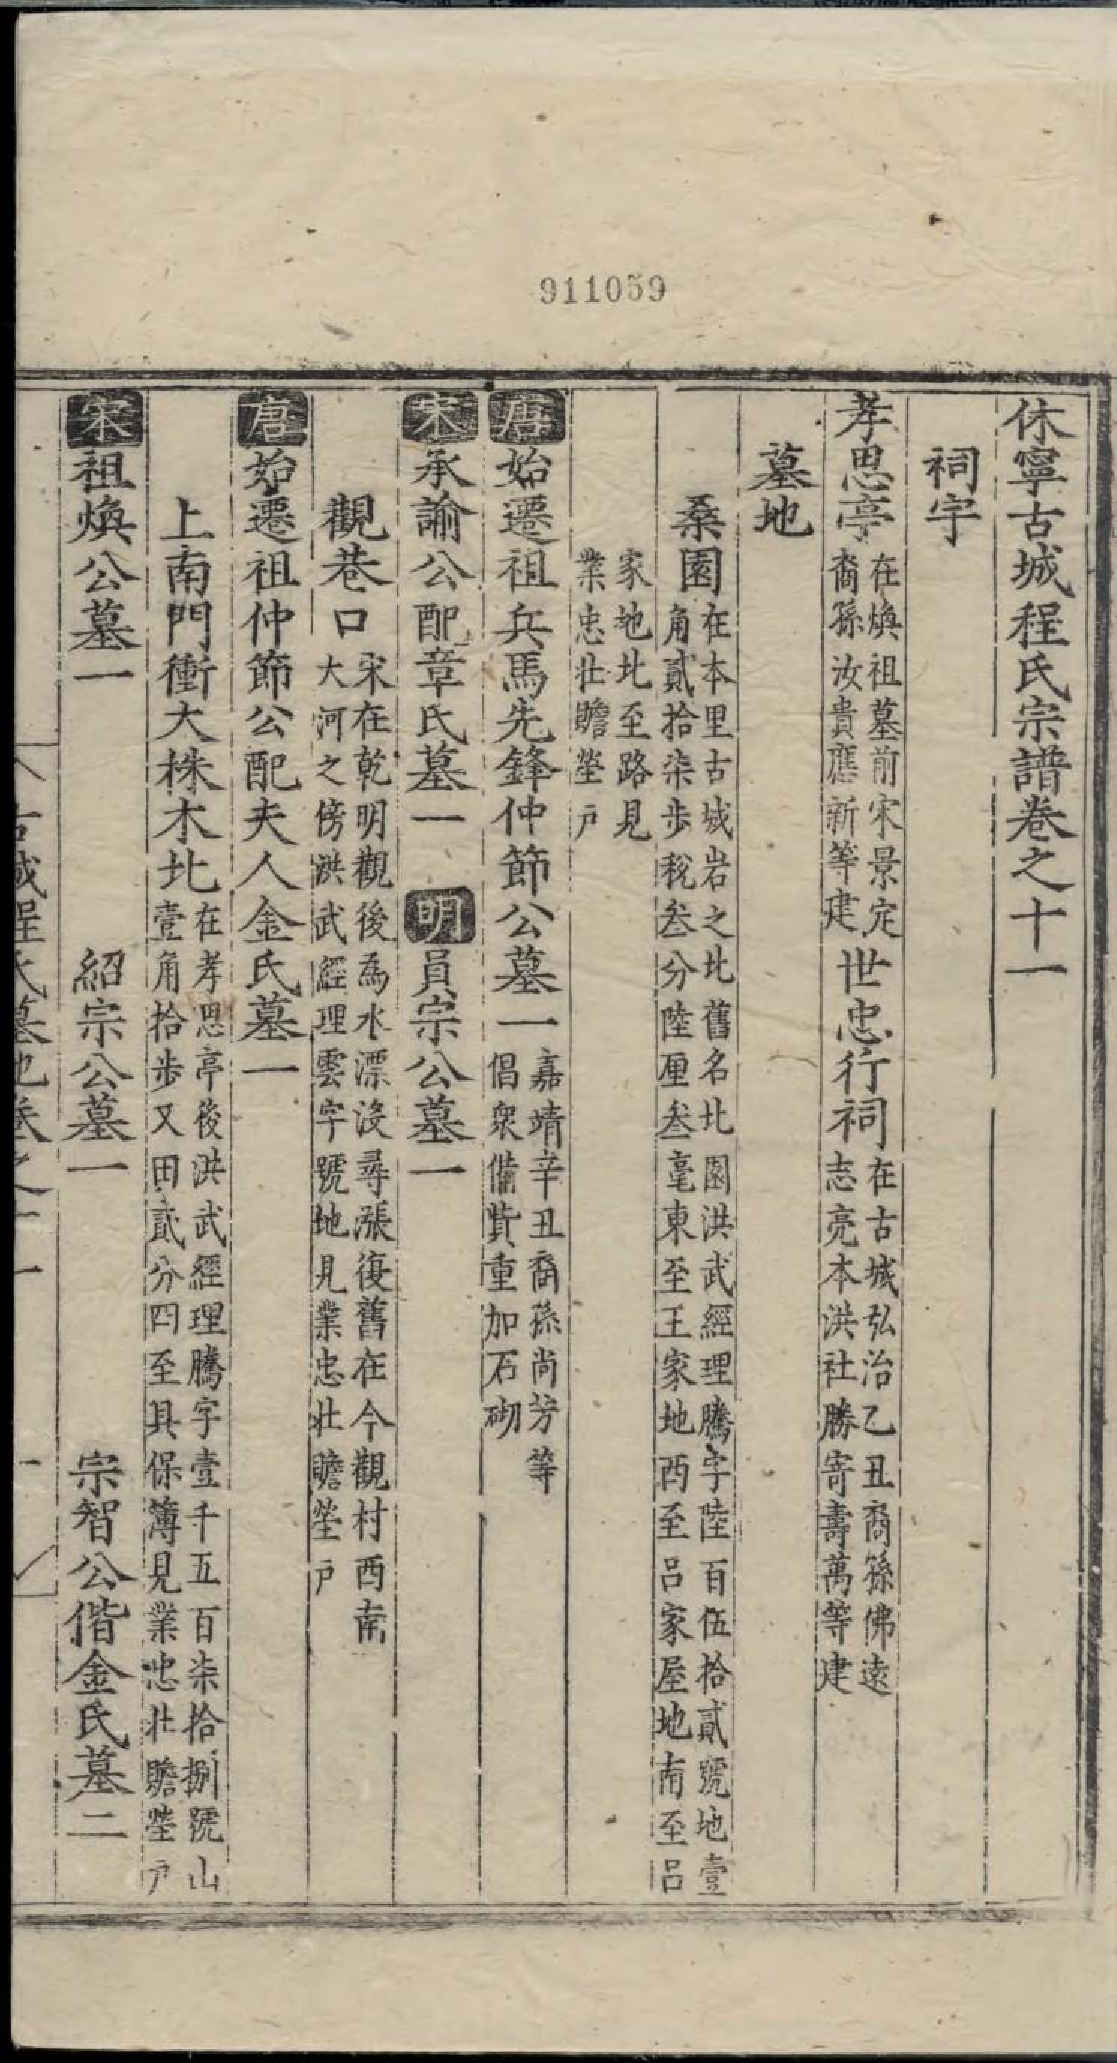 911059
休寧古城程氏宗譜卷之十一
祠宇
孝思亭
在煥祖墓前宋景定
裔孫汝貴應新等建
世忠行祠
在古城弘治乙丑裔孫佛遠
志亮本洪社勝寄壽萬等建
墓地
桑園
在本里古城岩之北舊名北園洪武經理騰字陸百伍拾貳號地壹
角貳拾柒步稅叁分陸厘叁毫東至王家地西至呂家屋地南至呂
家地北至路見
業忠壯贍塋戶
唐始遷祖兵馬先鋒仲節公墓一
嘉靖辛丑裔孫尚芳等
倡衆備貲重加石砌
宋承諭公配章氏墓一
明員宗公墓一
觀巷口
宋在乾明觀後爲水漂沒尋漲復舊在今觀村西南
大河之傍洪武經理雲字號地見業忠壯贍塋戶
唐始遷祖仲節公配夫人金氏墓一
上南門衝大株木北
在孝思亭後洪武經理騰字壹千五百柒拾捌號山
壹角拾步又田貳分四至具保簿見業忠壯贍塋戶
宋祖煥公墓一
紹宗公墓一
宗智公偕金氏墓二
古城程氏墓地卷之十一